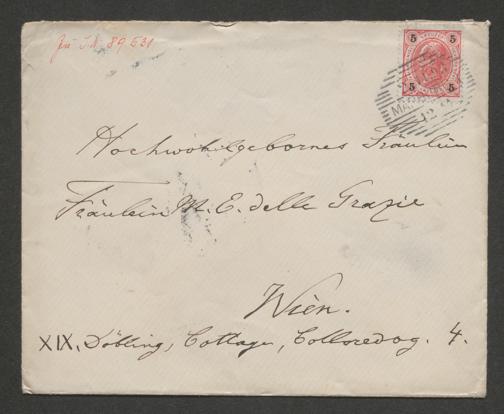 Zu I.N. 89531
5 5
5 5
Hochwohlgebornes Fräulein
Fräulein M. E. delle Grazie
Wien.
XIX, Döbling, Cottage, Colloredog. 4.